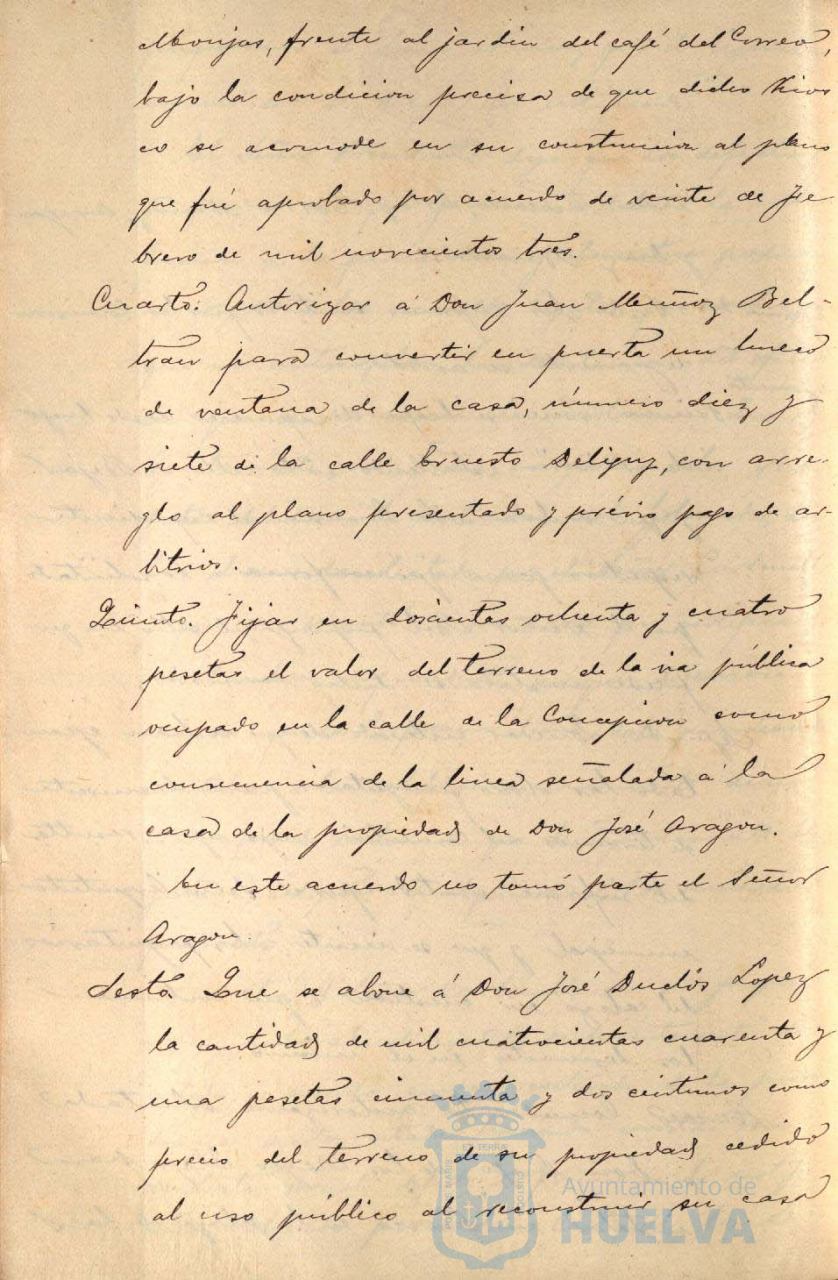 Monjas, frente al jardin del café del Correo,
bajo la condicion precisa de que dicho Kios
co se acomode en su construccion al plano
que fué aprobado por acuerdo de veinte de Fe
brero de mil novecientos tres.
Cuarto: Autorizar á Don Juan Muñoz Bel-
tran para convertir en puerta un hueco
de ventana de la casa, número diez y
siete de la calle Ernesto Deligny, con arre-
glo al plano presentado y prévio pago de ar-
bitrios.
Quinto. Fijar en doscientas ochenta y cuatro
pesetas el valor del terreno de la via pública
ocupado en la calle de la Concepcion como
consecuencia de la linea señalada á la
casa de la propiedad de Don José Aragon.
En este acuerdo no tomó parte el Señor
Aragon.
Sesto. Que se abone á Don José Duclós Lopez
la cantidad de mil cuatrocientas cuarenta y
una pesetas cincuenta y dos centimos como
precio del terreno de su propiedad cedido
al uso público al reconstruir su casa
Ayuntamiento de
HUELVA